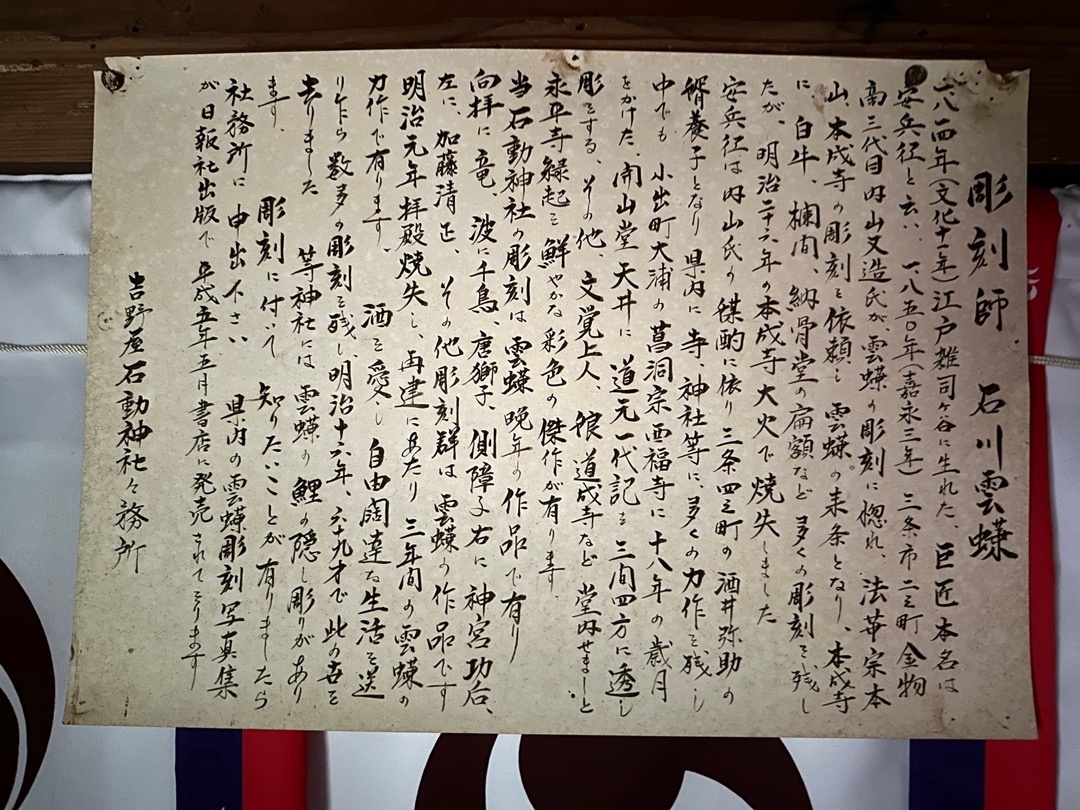 彫刻師 石川雲蝶
一八一四年(文化十一年)江戸雑司ヶ谷に生れた、巨匠本名は
安兵衛と云い、一八五〇年(嘉永三年)三条市二之町金物
商三代目内山又造氏が、雲蝶の彫刻に惚れ、法華宗本
山、本成寺の彫刻を依頼し雲蝶の来条となり、本成寺
に、白牛、欄間、納骨堂の扁額など多くの彫刻を残し
たが、明治二十六年の本成寺大火で焼失しました
安兵衛は内山氏の媒酌に依り三条四之町の酒井弥助の
婿養子となり県内に寺、神社等に、多くの力作を残し
中でも小出町大浦の曹洞宗西福寺に十八年の歳月
をかけた、開山堂天井に道元一代記を三間四方に透し
彫をする、その他、文覚上人、娘道成寺など堂内せましと
永平寺縁起を鮮やかな彩色の傑作が有ります。
当石動神社の彫刻は雲蝶晩年の作品で有り
向拝に竜、波に千鳥、唐獅子、側障子右に神宮功后、
左に、加藤清正、その他彫刻群は雲蝶の作品です
明治元年拝殿焼失し、再建にあたり三年間の雲蝶の
力作で有ります、酒を愛し自由闊達な生活を送
り乍ら数多の彫刻を残し、明治十六年、六十九才で此の世を
去りました 等神社には雲蝶の鯉の隠し彫りがあり
ます、彫刻に付いて知りたいことが有りましたら
社務所に申出下さい 県内の雲蝶彫刻写真集
が日報社出版で平成五年五月書店に発売されております
吉野屋石動神社々務所